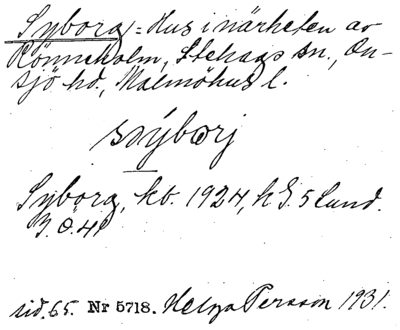 Syborg = Hus i närheten av
Rönneholm, Stehags sn., On-
sjö hd, Malmöhus l.
Syborg, kb. 1924, h S. 5 Lund.
I.Ö.41
sid. 65. Nr 5718. Helga Persson 1931.